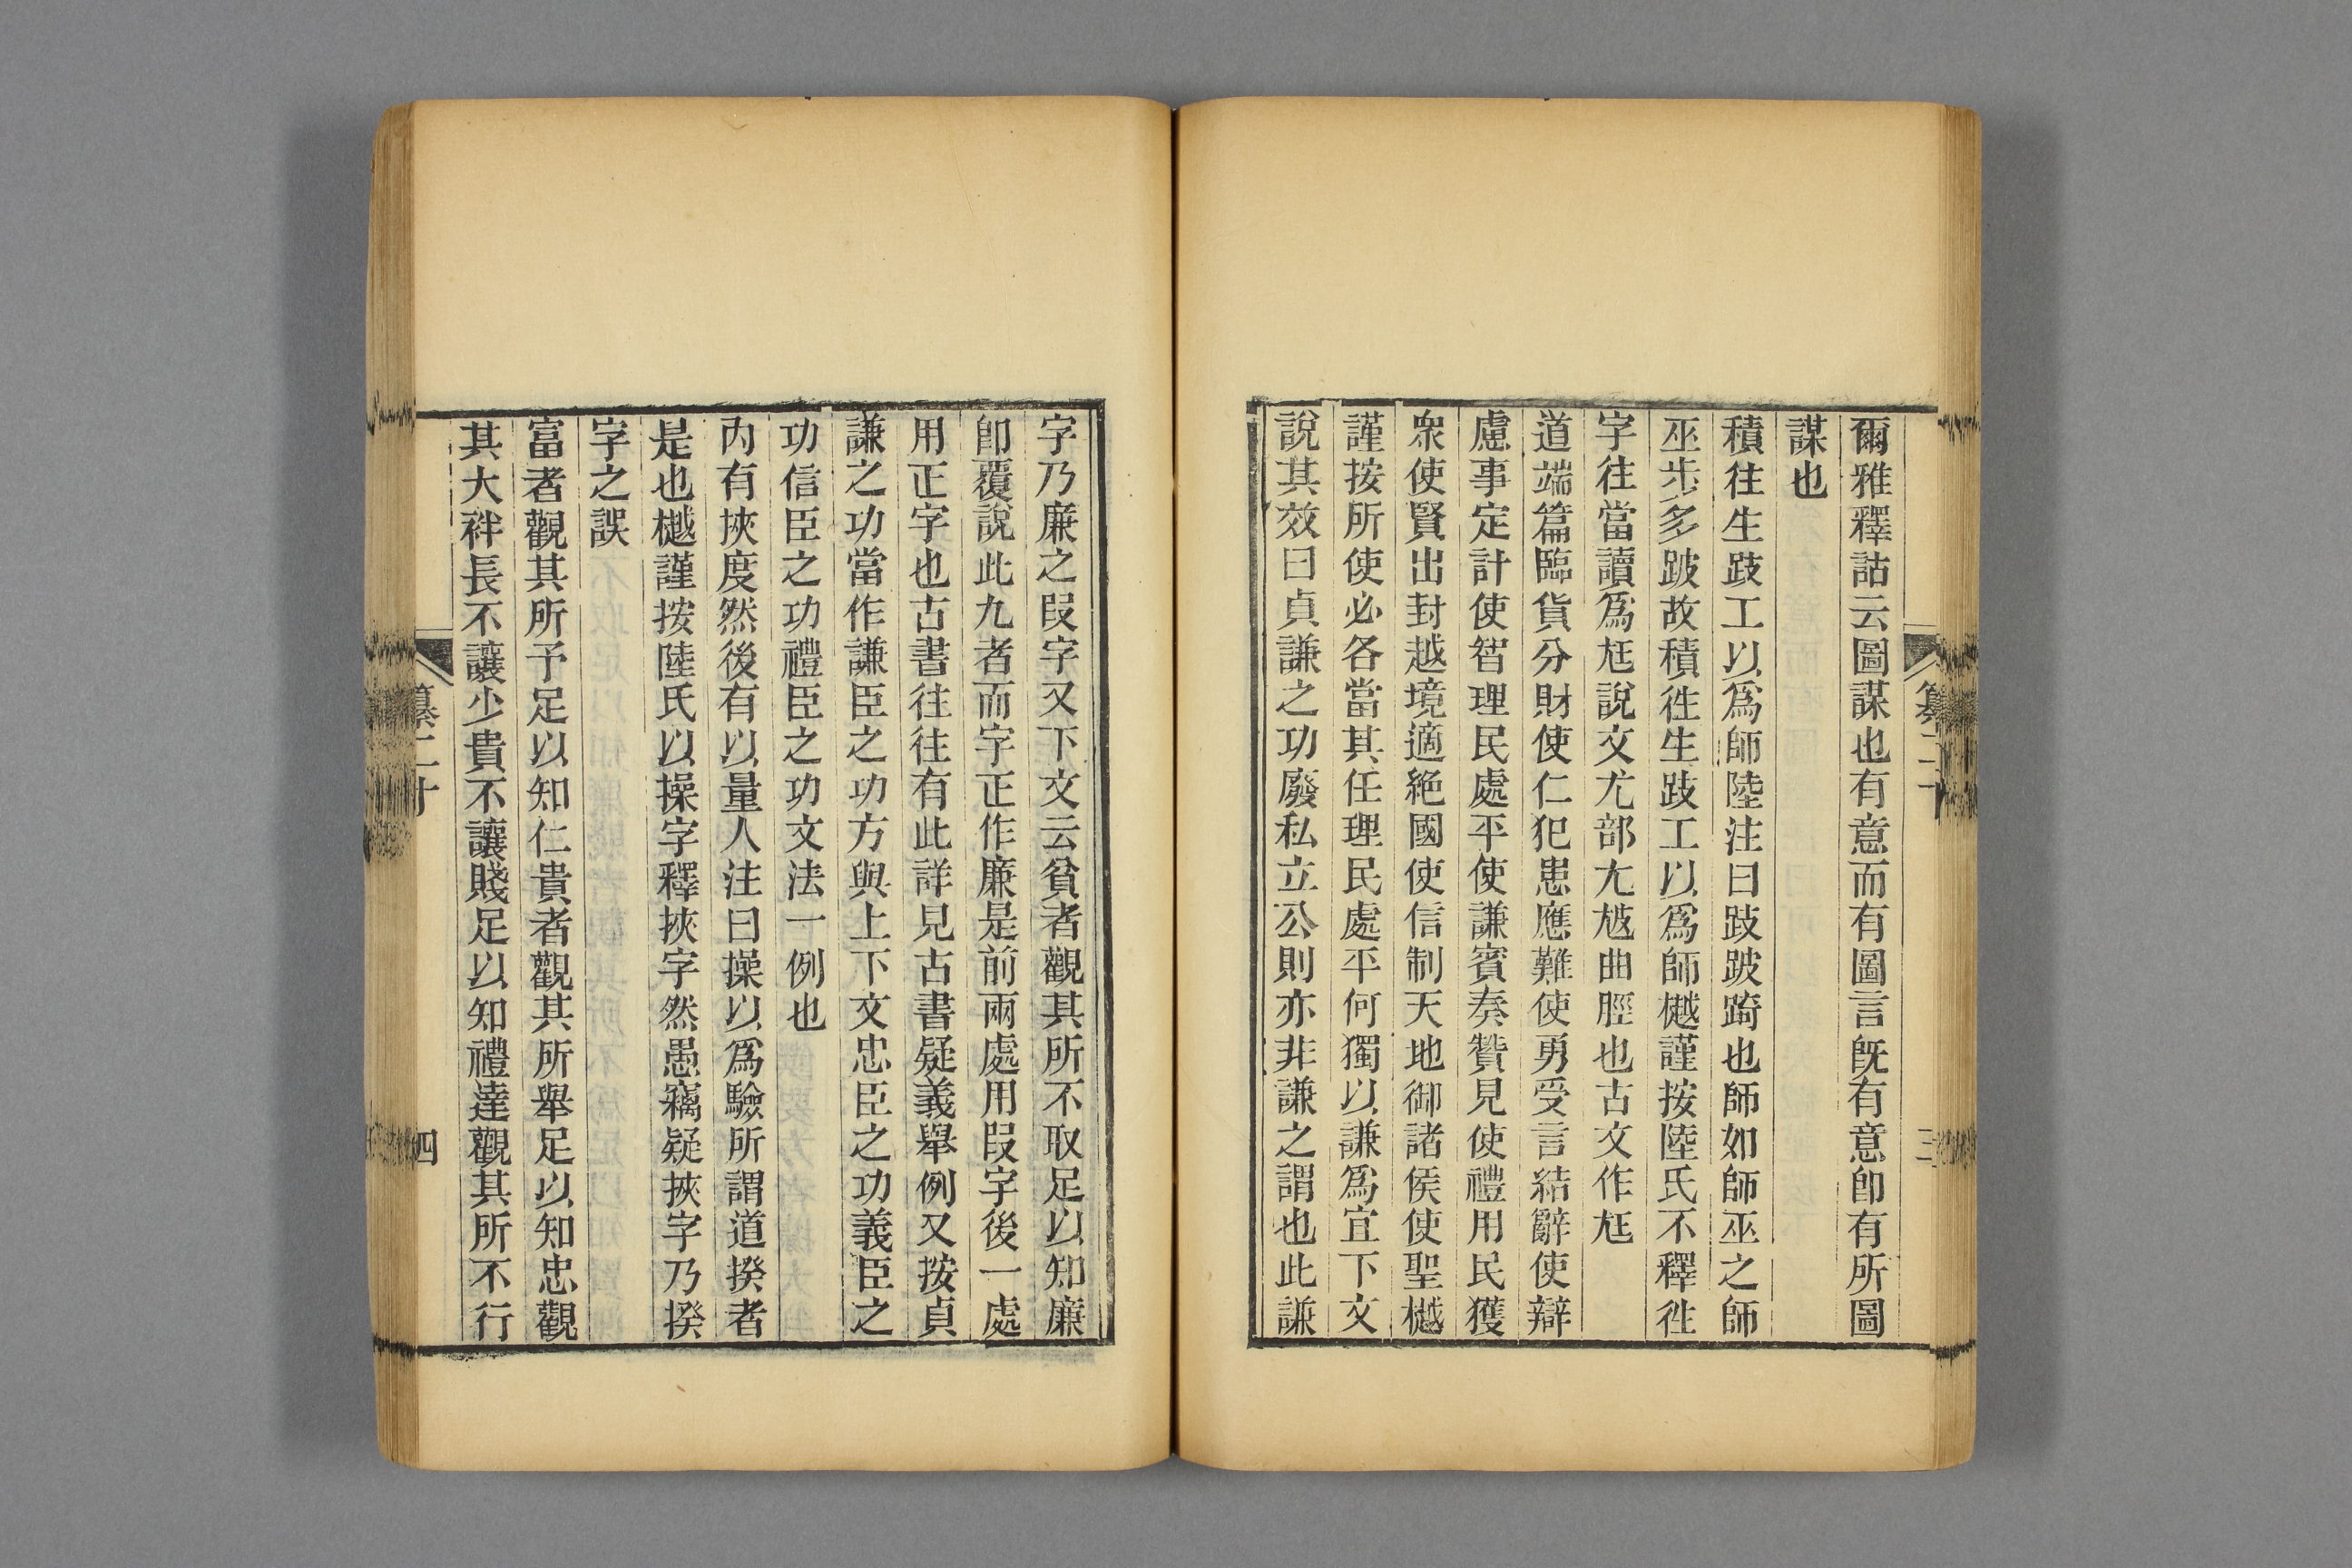 爾雅釋詁云圖謀也有意而有圖言旣有意卽有所圖
謀也
積往生跂工以爲師陸注曰跂跛踦也師如師巫之師
巫步多跛故積徃生跂工以爲師樾謹按陸氏不釋徃
字往當讀爲尩說文尢部尢𡯁曲脛也古文作尩
道端篇臨貨分財使仁犯患應難使勇受言結辭使辯
慮事定計使智理民處平使謙賓奏贊見使禮用民獲
衆使賢出封越境適絶國使信制天地御諸侯使聖樾
謹按所使必各當其任理民處平何獨以謙爲宜下文
說其效曰貞謙之功廢私立公則亦非謙之謂也此謙
字乃廉之叚字又下文云貧者觀其所不取足以知廉
卽覆說此九者而字正作廉是前兩處用叚字後一處
用正字也古書往往有此詳見古書疑義舉例又按貞
謙之功當作謙臣之功方與上下文忠臣之功義臣之
功信臣之功禮臣之功文法一例也
內有挾度然後有以量人注曰操以爲驗所謂道揆者
是也樾謹按陸氏以操字釋挾字然愚竊疑挾字乃揆
字之誤
富者觀其所予足以知仁貴者觀其所舉足以知忠觀
其大袢長不讓少貴不讓賤足以知禮達觀其所不行
纂二十
三
四